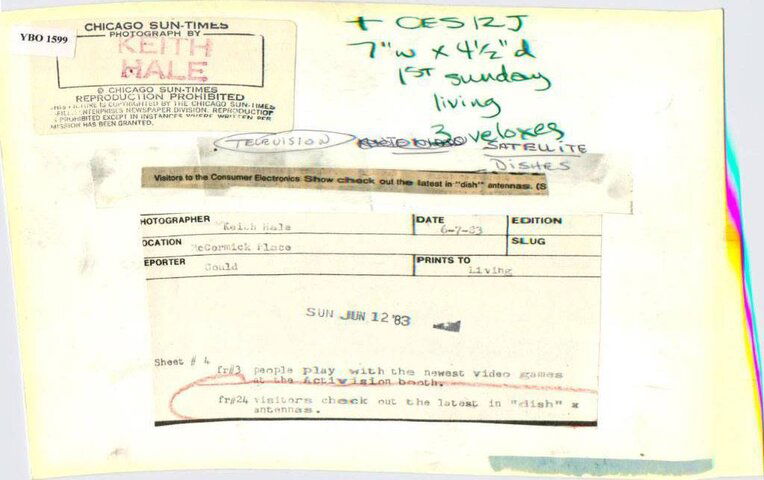 YBO 1599
CHICAGO SUN-TIMES
PHOTOGRAPH BY
KEITH
HALE
© CHICAGO SUN-TIMES
REPRODUCTION PROHIBITED
THIS PICTURE IS COPYRIGHTED BY THE CHICAGO SUN-TIMES
ENTERPRISES NEWSPAPER DIVISION. REPRODUCTION
PROHIBITED EXCEPT IN INSTANCES WHERE WRITTEN PER
MISSION HAS BEEN GRANTED.
+ CES12J
7"w x 4½"d
1ST sunday
living
3 veloxes
TELEVISION
SATELLITE
DISHES
Visitors to the Consumer Electronics Show check out the latest in "dish" antennas. (S
HOTOGRAPHER Keith Hale DATE 6-7-83 EDITION
OCATION McCormick Place SLUG
EPORTER Gould PRINTS TO Living
SUN JUN 12 '83
Sheet # 4
fr#3 people play with the newest video games
at the Activision booth.
fr#24 visitors check out the latest in "dish" x
antennas.